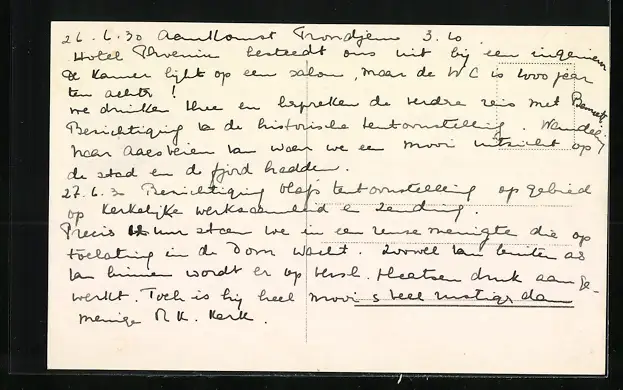 26.6.30 Aankomst Trondjem 3.10
Hotel Phoenix besteedt ons uit bij een ingenieur
De kamer lijkt op een salon, maar de WC is 1000 jaar
ten achter!
we drinken thee en bespreken de verdre reis met Bennett
Bezichtiging v/d historische tentoonstelling. Wandeling
naar Aasveien van waar we een mooi uitzicht op
de stad en de fjord hadden.
27.6.30 Bezichtiging Olafs tentoonstelling op gebied
op kerkelijke werkzaamheid en zending.
Precis uur staan we in een reuse menigte die op
toelating in de Dom wacht. Zoowel van buiten as
van binnen wordt er op versch. plaatsen druk aan ge-
werkt. Toch is hij heel mooi s veel rustiger dan
menige R.K. Kerk.